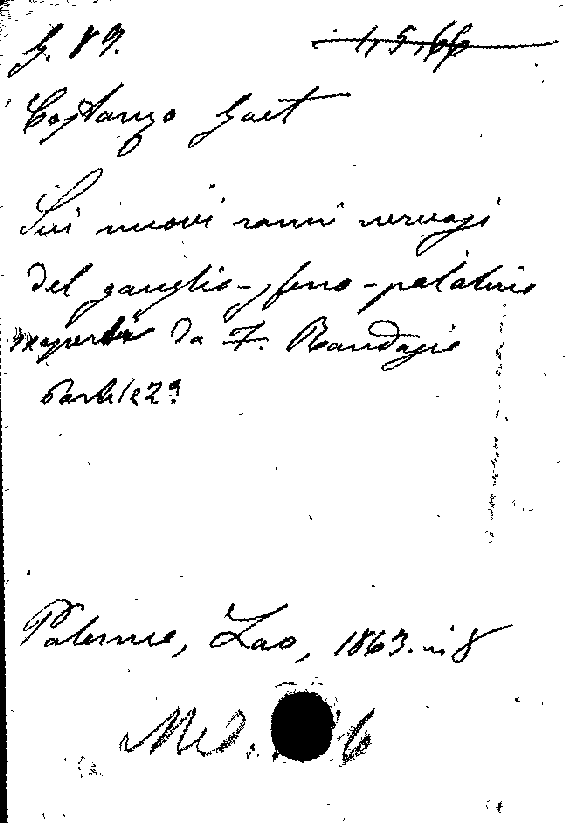 G. 89. 4,5,66
Costanzo Gaet
Sui nuovi rami nervosi
del ganglio-sfeno-palatino
scoperti da F. Randazio
Parte 1e 2a
Palermo, Lao, 1863. in 8
Med. 6